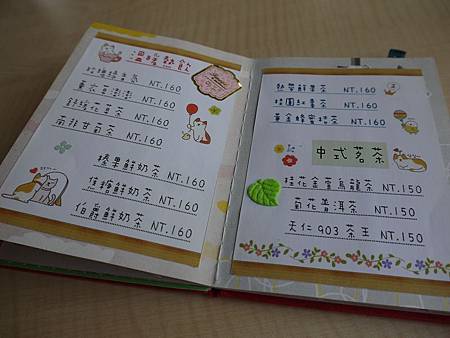 溫暖熱飲
NT.160
NT.160
NT.160
南非甘菊茶 NT.160
榛果鮮奶茶 NT.160
焦糖鮮奶茶 NT.160
伯爵鮮奶茶 NT.160
熱帶鮮果茶 NT.160
桂圓紅棗茶 NT.160
黃金蜂蜜柚茶 NT.160
中式茗茶
桂花金萱烏龍茶 NT.150
菊花普洱茶 NT.150
天仁903茶王 NT.150